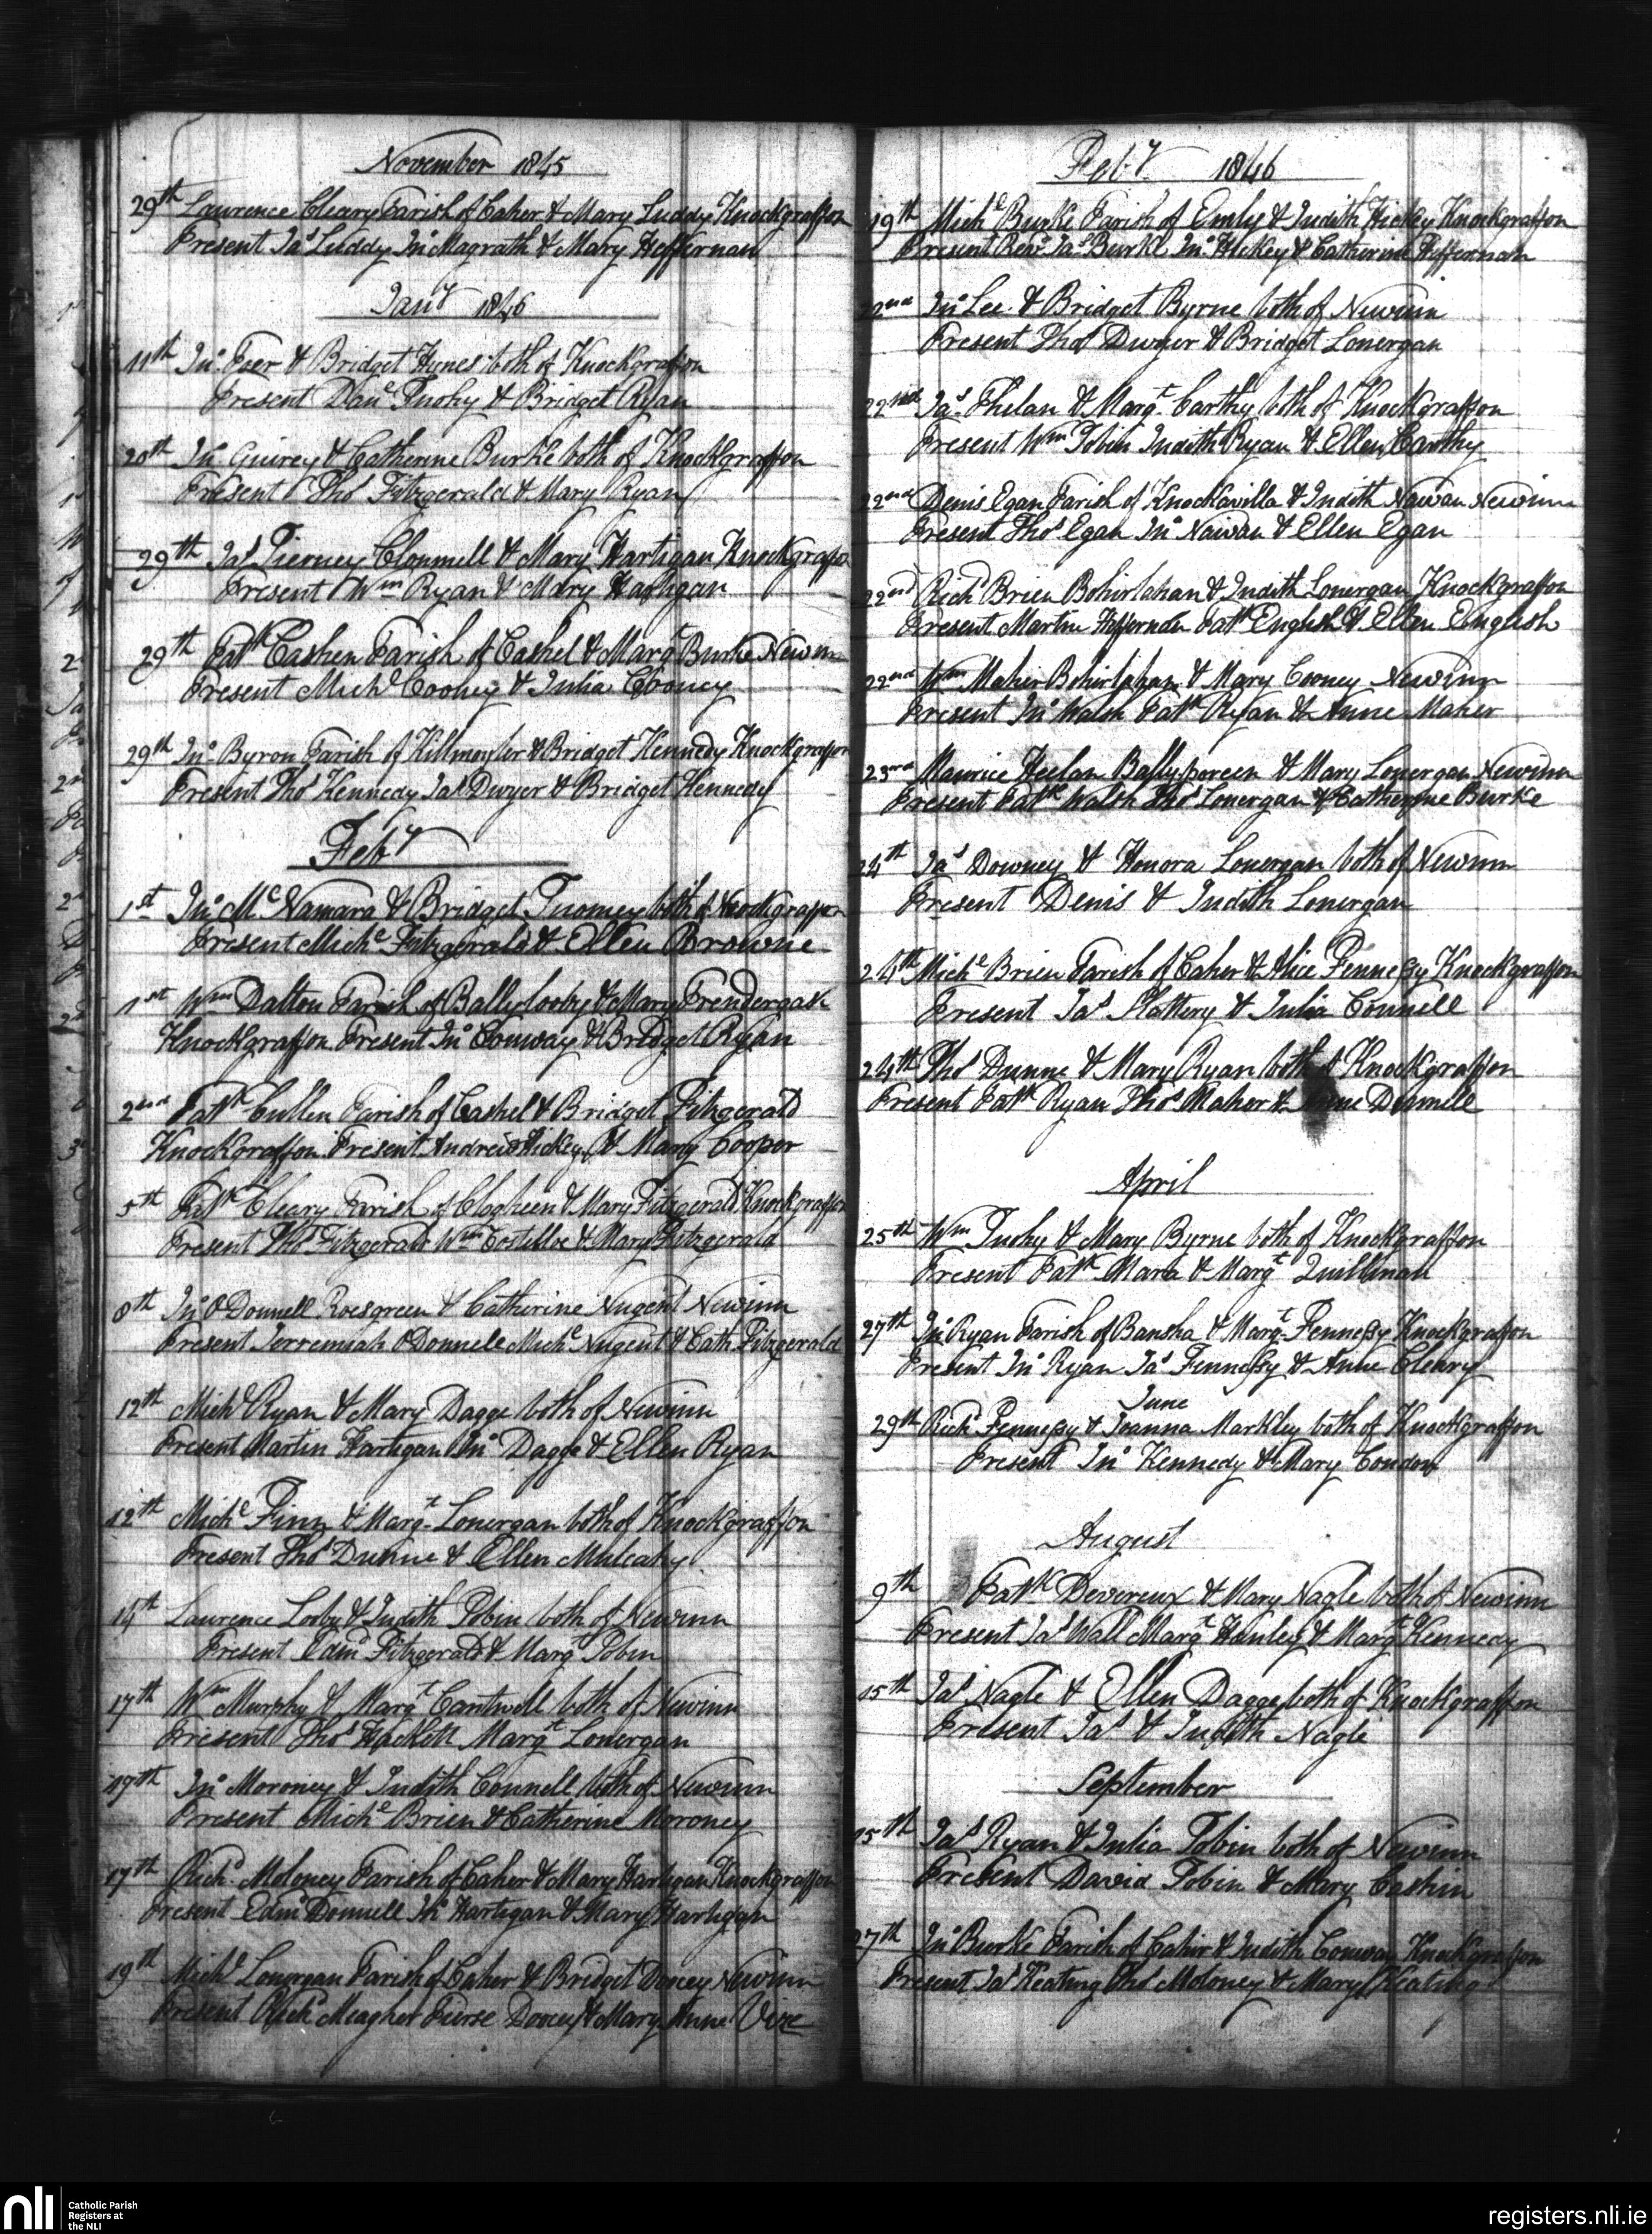 November 1845
29th Laurence Cleary Parish of Caher & Mary Luddy Knockgraffon
Present Jas Luddy Jno Magrath & Mary Heffernan
Jany 1846
11th Jno Foer & Bridget Hynes both of Knockgraffon
Present Danl Tuohy & Bridget Ryan
20th Jno Guirey & Catherine Burke both of Knockgraffon
Present Thos Fitzgerald & Mary Ryan
29th Jas Tierney Clonmell & Mary Hartigan Knockgraffon
Present Wm Ryan & Mary Hartigan
29th Patk Cashen Parish of Cashel & Margt Burke Newinn
Present Michl Cooney & Julia Cooney
29th Jno Byron Parish of Killmoyler & Bridget Kennedy Knockgraffon
Present Thos Kennedy Jas Dwyer & Bridget Kennedy
Feby
1st Jno McNamara & Bridget Tuomey both of Knockgraffon
Present Michl Fitzgerald & Ellen Browne
1st Wm Dalton Parish of Ballylooby & Mary Prendergast
Knockgraffon Present Jno Conway & Bridget Ryan
2nd Patk Cullen Parish of Cashel & Bridget Fitzgerald
Knockgraffon Present Andrew Hickey & Mary Cooper
5th Patk Cleary Parish of Clogheen & Mary Fitzgerald Knockgraffon
Present Thos Fitzgerald Wm Costelloe & Mary Fitzgerald
8th Jno O Donnell Roesgreen & Catherine Nugent Newinn
Present Jerremiah O Donnell Michl Nugent & Cath Fitzgerald
12th Michl Ryan & Mary Dagge both of Newinn
Present Martin Hartigan Jno Dagge & Ellen Ryan
12th Michl Finn & Margt Lonergan both of Knockgraffon
Present Thos Dunne & Ellen Mulcahy
14th Laurence Looby & Judith Tobin both of Newinn
Present Edmd Fitzgerald & Margt Tobin
17th Wm Murphy & Margt Cantwell both of Newinn
Present Thos Hackett Margt Lonergan
17th Jno Moroney & Judith Connell both of Newinn
Present Michl Brien & Catherine Moroney
17th Richd Moloney Parish of Caher & Mary Hartigan Knockgraffon
Present Edmd Donnell Jno Hartigan & Mary Hartigan
19th Michl Lonergan Parish of Caher & Bridget Doocey Newinn
Present Richd Meagher Pierse Doocey & Mary Anne Vize
Feby 1846
19th Michl Burke Parish of Emly & Judith Hickey Knockgraffon
Present Revd Jas Burke Jno Hickey & Catherine Heffernan
22nd Jno Lee & Bridget Byrne both of Newinn
Present Thos Dwyer & Bridget Lonergan
22nd Jas Phelan & Margt Carthy both of Knockgraffon
Present Wm Tobin Judith Ryan & Ellen Carthy
22nd Denis Egan Parish of Knockavilla & Judith Nawan Newinn
Present Thos Egan Jno Nawan & Ellen Egan
22nd Richd Brien Bohirlahan & Judith Lonergan Knockgraffon
Present Martin Heffernan Patk English & Ellen English
22nd Wm Maher Bohirlahan & Mary Cooney Newinn
Present Jno Walsh Patk Ryan & Anne Maher
23rd Maurice Heelan Ballyporeen & Mary Lonergan Newinn
Present Patk Walsh Thos Lonergan & Catherine Burke
24th Jas Downey & Honora Lonergan both of Newinn
Present Denis & Judith Lonergan
24th Michl Brien Parish of Caher & Alice Fennessy Knockgraffon
Present Jas Slattery & Julia Connell
24th Thos Dunne & Mary Ryan both of Knockgraffon
Present Patk Ryan Thos Maher & Anne Donnell
April
25th Wm Tuohy & Mary Byrne both of Knockgraffon
Present Patk Mara & Margt Quillinan
27th Jno Ryan Parish of Bansha & Margt Fennessy Knockgraffon
Present Jno Ryan Jas Fennessy & Anne Cleary
June
29th Richd Fennessy & Joanna Markley both of Knockgraffon
Present Jno Kennedy & Mary Condon
August
9th Patk Devereux & Mary Nagle both of Newinn
Present Jas Wall Margt Hanley & Margt Kennedy
15th Jas Nagle & Ellen Dagge both of Knockgraffon
Present Jas & Judith Nagle
September
15th Jas Ryan & Julia Tobin both of Newinn
Present David Tobin & Mary Cashin
27th Jno Burke Parish of Cahir & Judith Conway Knockgraffon
Present Jas Keating Thos Moloney & Mary Keating
nli
Catholic Parish
Registers at
the NLI
registers.nli.ie